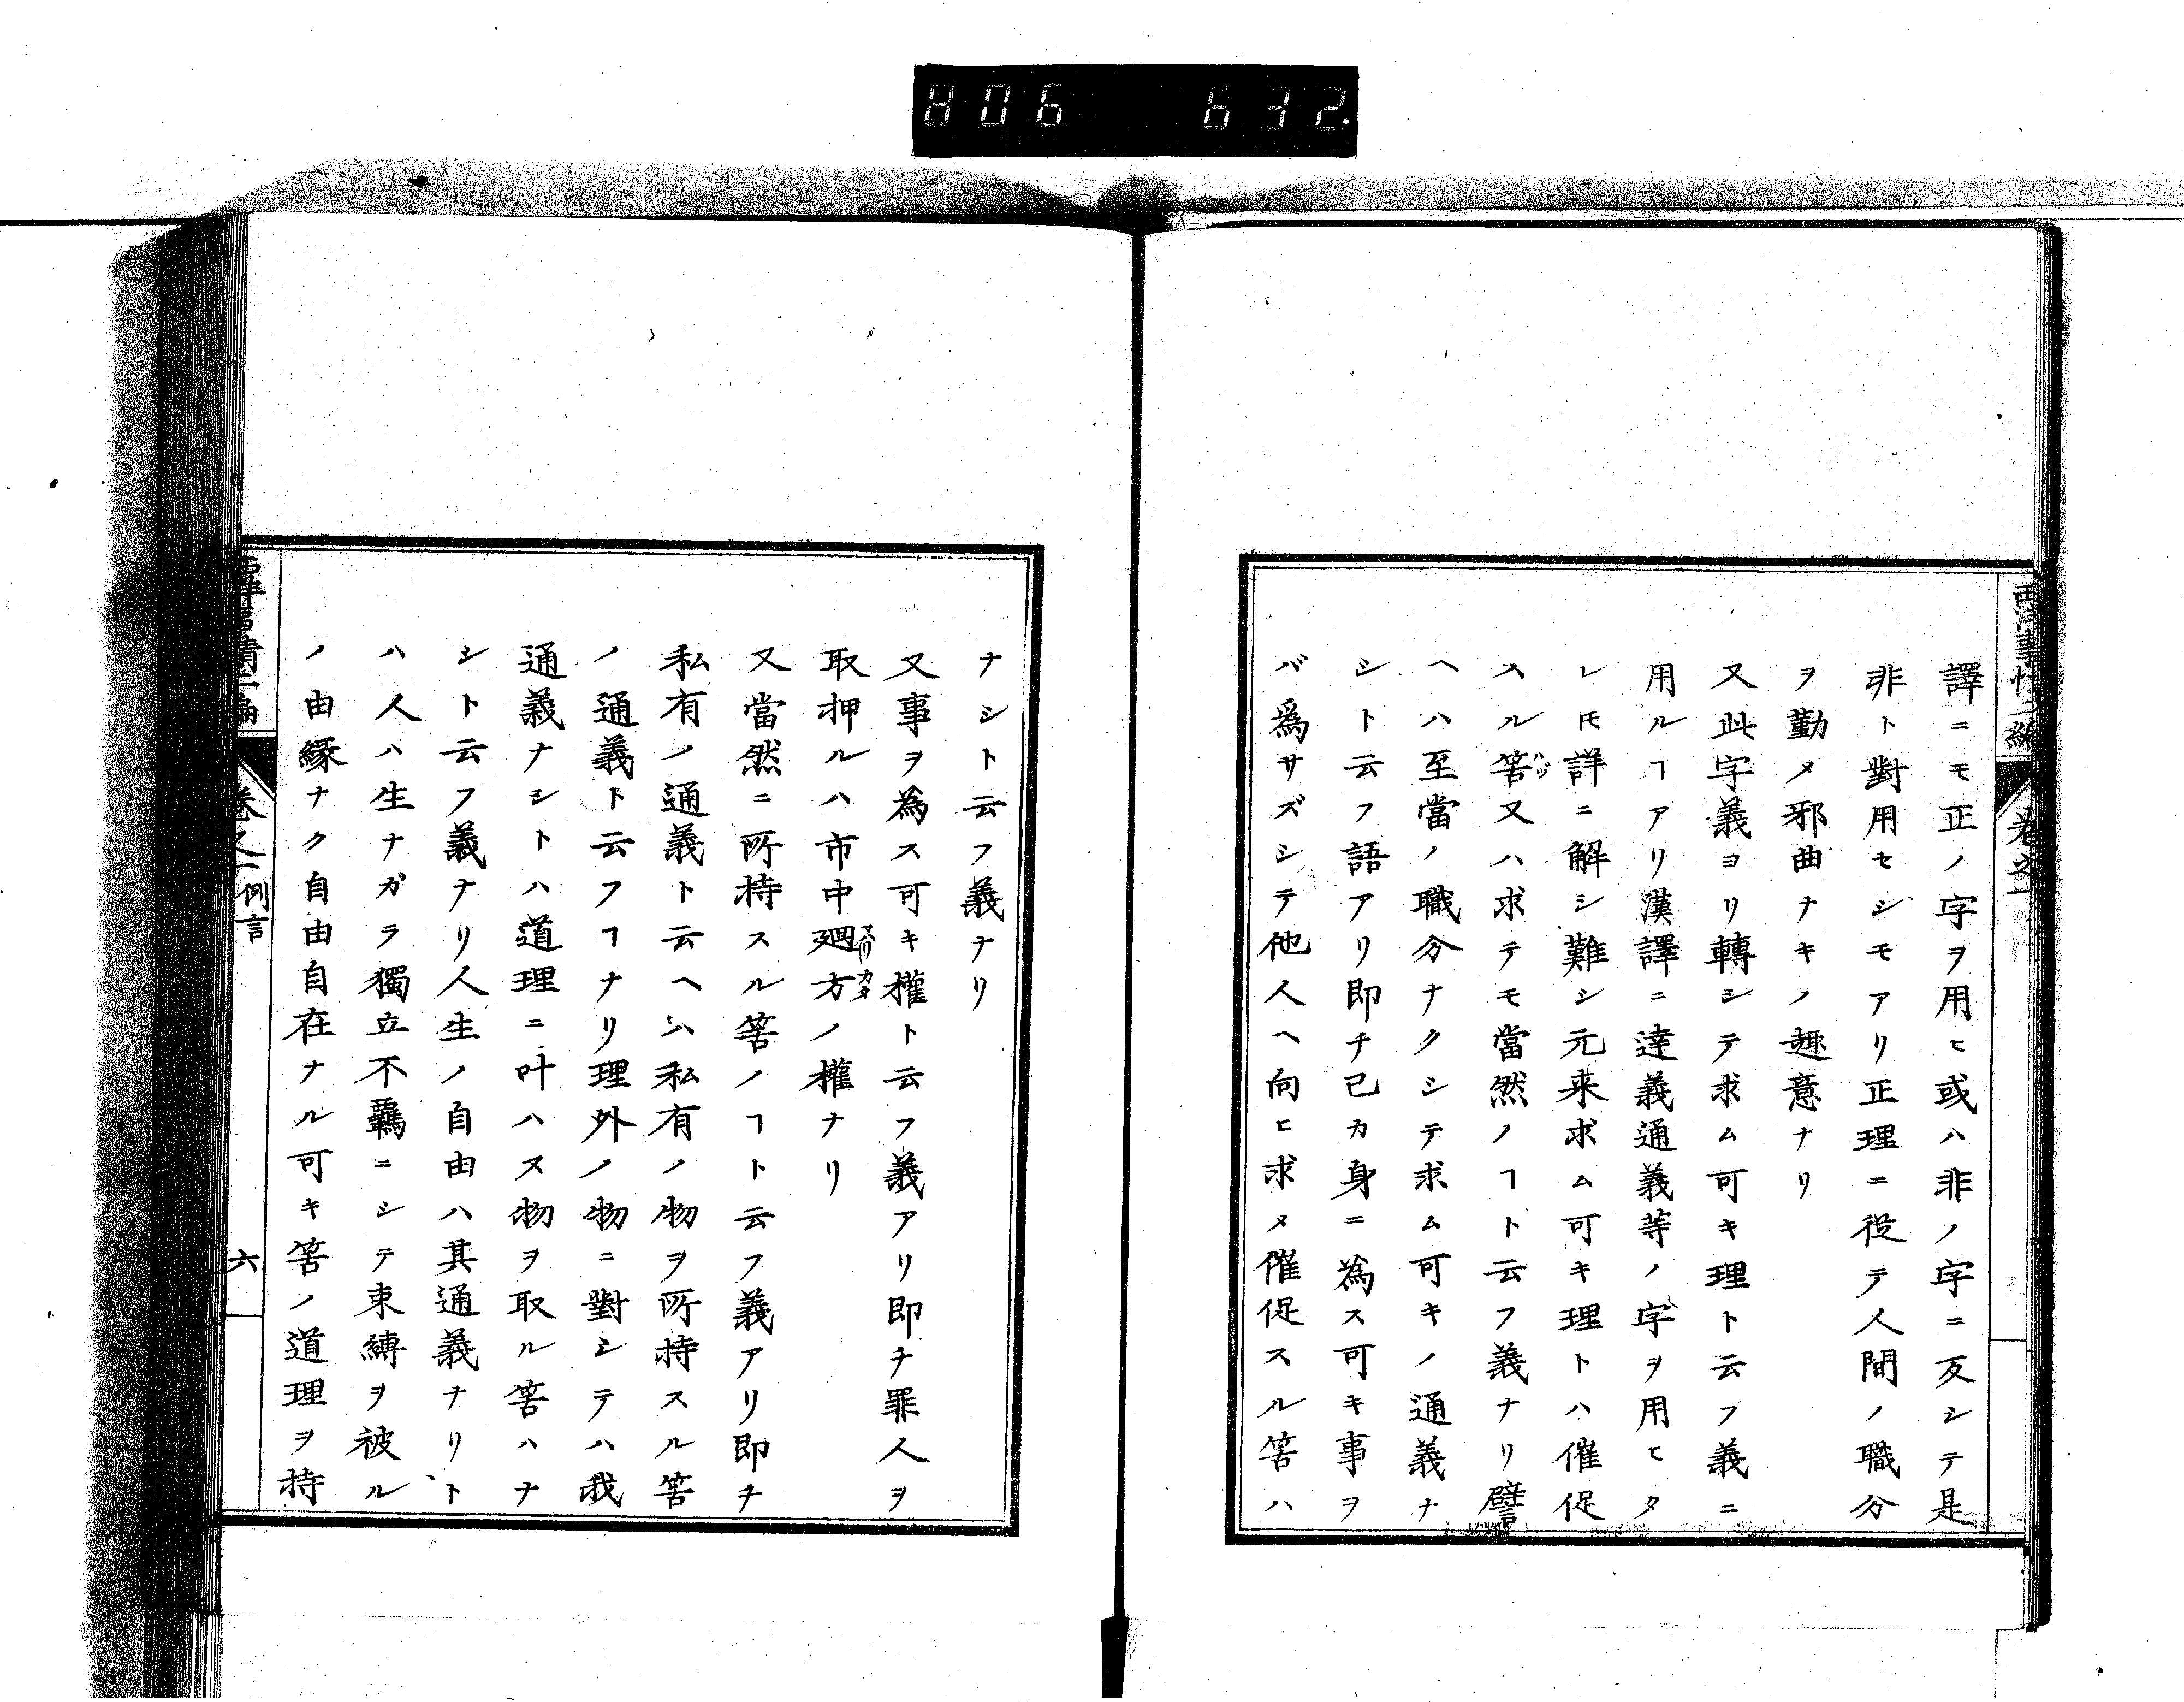 806 632.
西洋事情二編 卷之一
譯ニモ正ノ字ヲ用ヒ或ハ非ノ字ニ反シテ是
非ト對用セシモアリ正理ニ役テ人間ノ職分
ヲ勤メ邪曲ナキノ趣意ナリ
又此字義ヨリ轉シテ求ム可キ理ト云フ義ニ
用ルヿアリ漢譯ニ達義通義等ノ字ヲ用ヒタ
レ𪜈詳ニ解シ難シ元来求ム可キ理トハ催促
スル筈ハヅ又ハ求テモ當然ノヿト云フ義ナリ譬
ヘハ至當ノ職分ナクシテ求ム可キノ通義ナ
シト云フ語アリ即チ己カ身ニ為ス可キ事ヲ
バ爲サズシテ他人ヘ向ヒ求メ催促スル筈ハ
ナシト云フ義ナリ
又事ヲ為ス可キ權ト云フ義アリ即チ罪人ヲ
取押ルハ市中廻マハリ方カタノ權ナリ
又當然ニ所持スル筈ノヿト云フ義アリ即チ
私有ノ通義ト云ヘハ私有ノ物ヲ所持スル筈
ノ通義ト云フヿナリ理外ノ物ニ對シテハ我
通義ナシトハ道理ニ叶ハヌ物ヲ取ル筈ハナ
シト云フ義ナリ人生ノ自由ハ其通義ナリト
ハ人ハ生ナガラ獨立不羈ニシテ束縛ヲ被ル
ノ由縁ナク自由自在ナル可キ筈ノ道理ヲ持
西洋事情二編 卷之一 例言 六